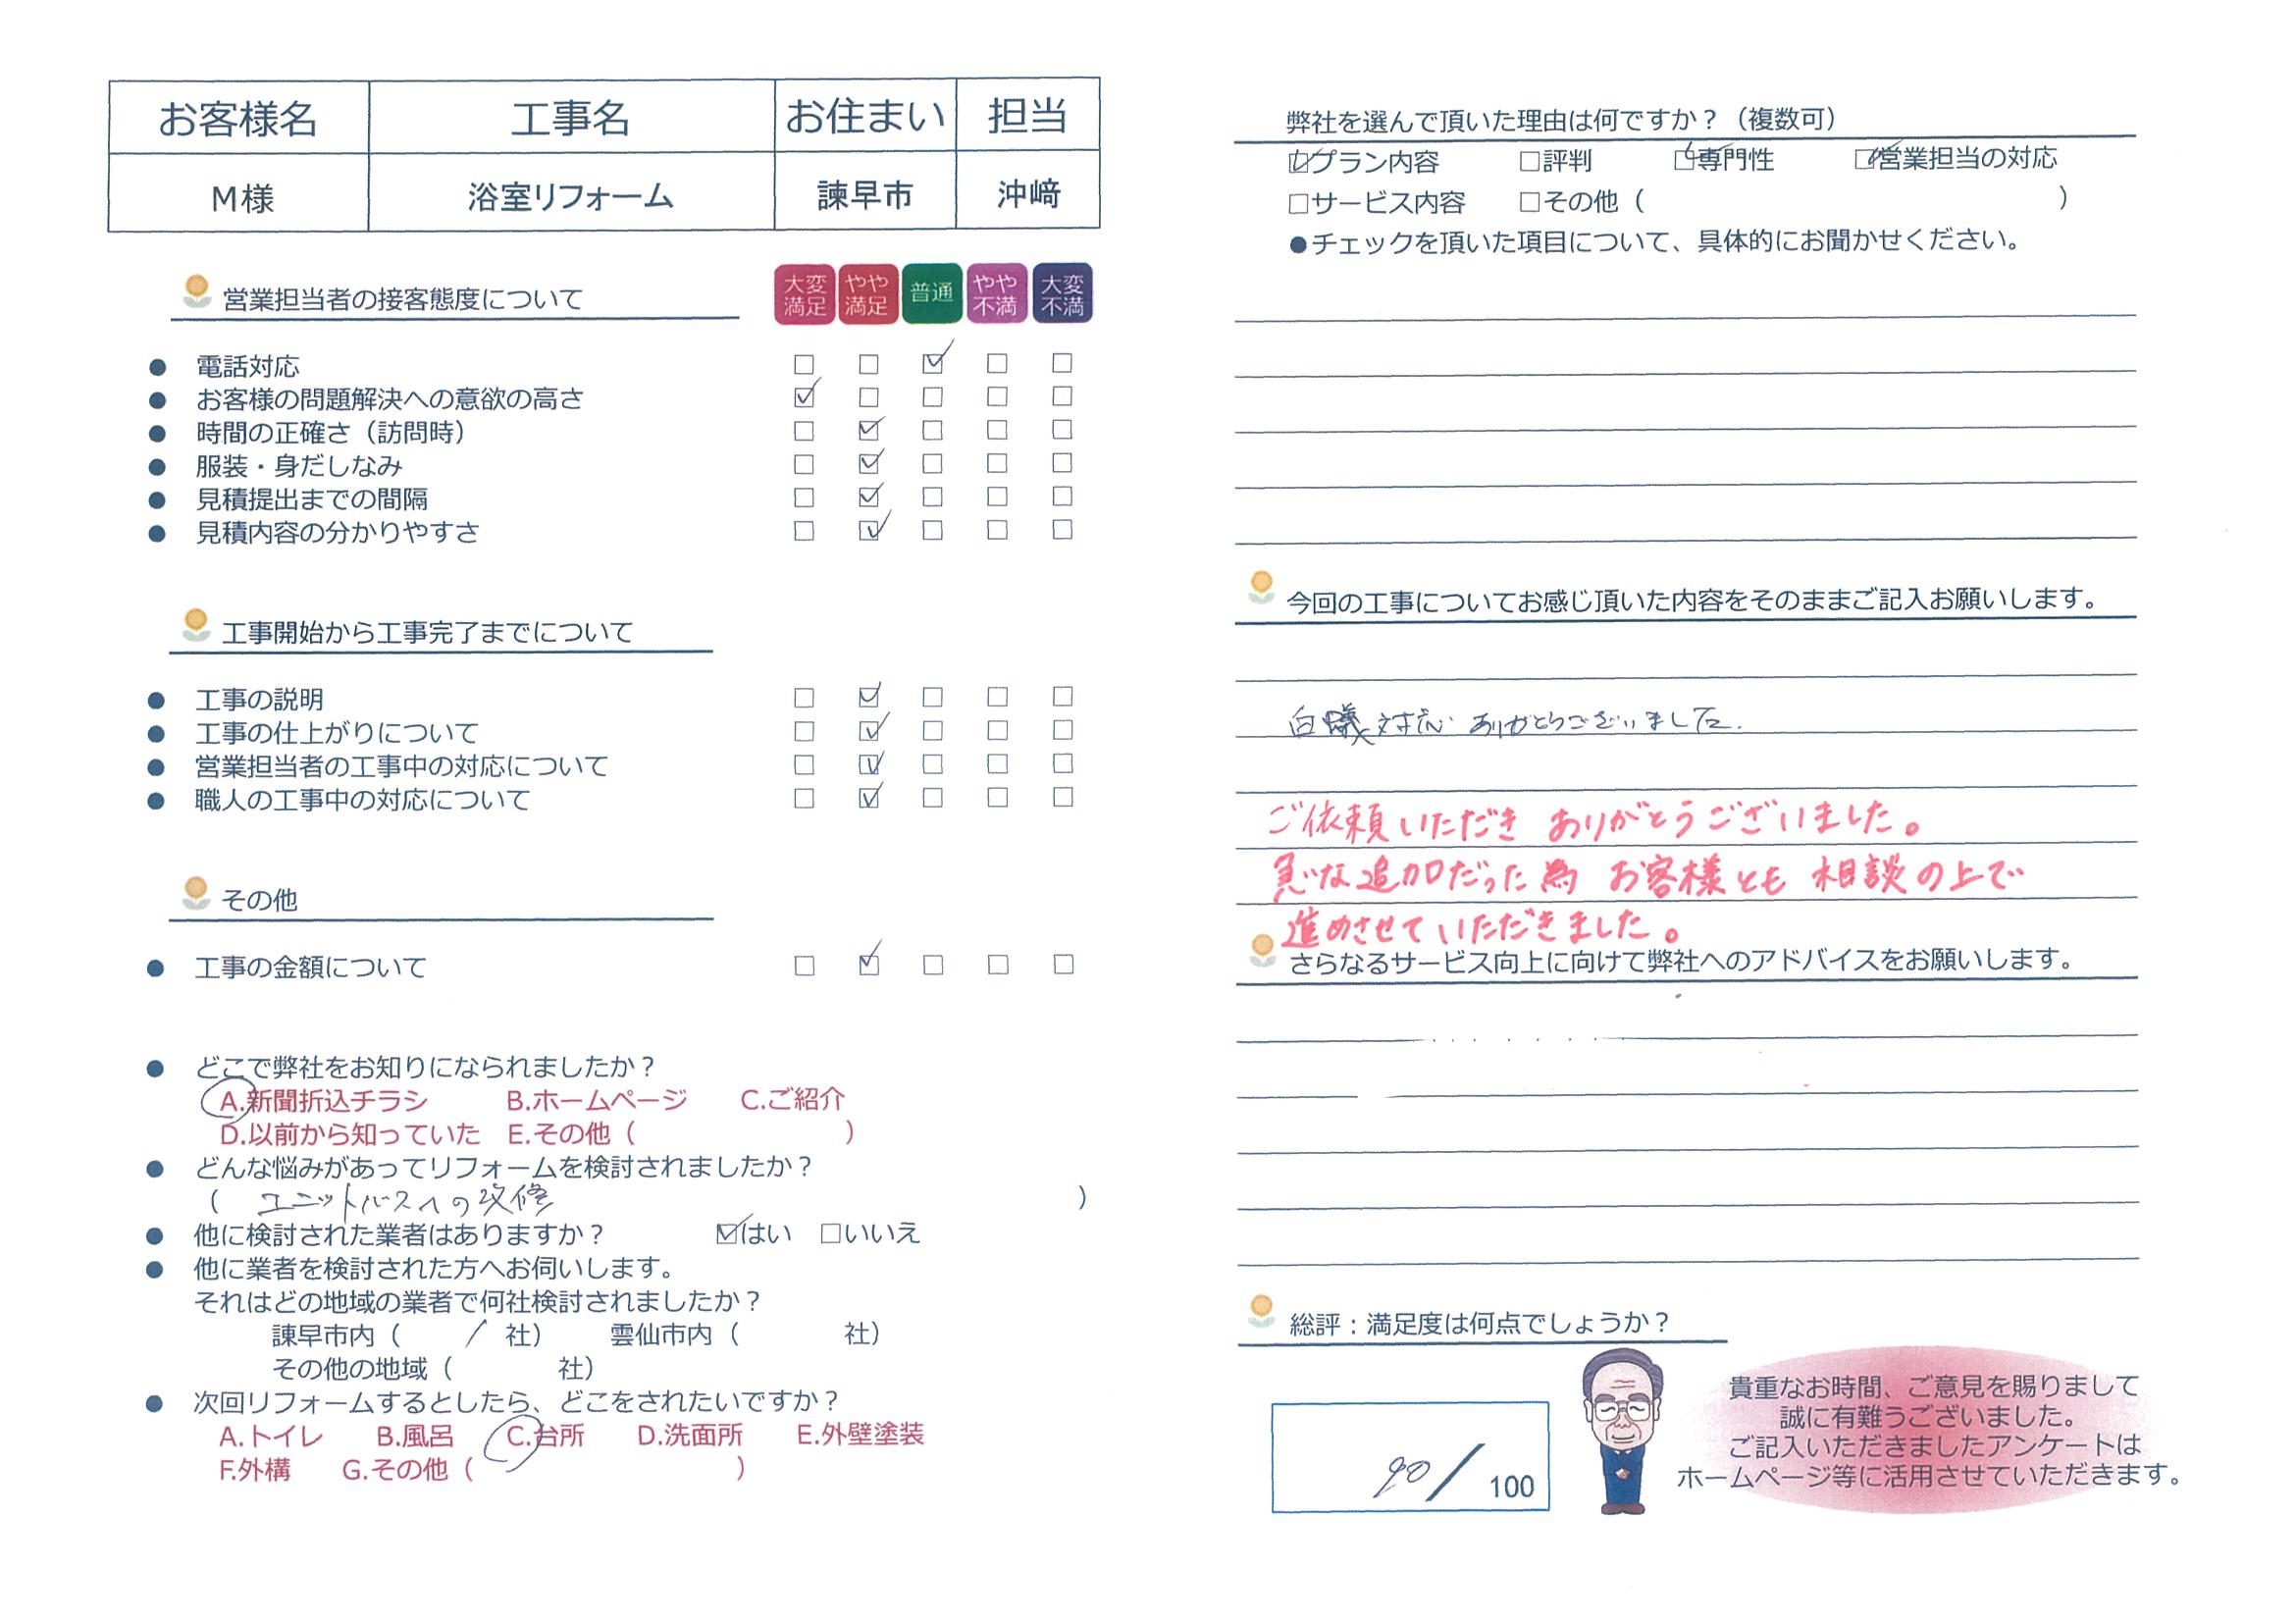 お客様名 工事名 お住まい 担当
M様 浴室リフォーム 諫早市 沖﨑
営業担当者の接客態度について
大変満足 やや満足 普通 やや不満 大変不満
● 電話対応 □ □ ☑ □ □
● お客様の問題解決への意欲の高さ ☑ □ □ □ □
● 時間の正確さ（訪問時） □ ☑ □ □ □
● 服装・身だしなみ □ ☑ □ □ □
● 見積提出までの間隔 □ ☑ □ □ □
● 見積内容の分かりやすさ □ ☑ □ □ □
工事開始から工事完了までについて
● 工事の説明 □ ☑ □ □ □
● 工事の仕上がりについて □ ☑ □ □ □
● 営業担当者の工事中の対応について □ ☑ □ □ □
● 職人の工事中の対応について □ ☑ □ □ □
その他
● 工事の金額について □ ☑ □ □ □
● どこで弊社をお知りになられましたか？
A.新聞折込チラシ B.ホームページ C.ご紹介
D.以前から知っていた E.その他（ ）
● どんな悩みがあってリフォームを検討されましたか？
（ ユニットバスへの改修 ）
● 他に検討された業者はありますか？ ☑はい □いいえ
● 他に業者を検討された方へお伺いします。
それはどの地域の業者で何社検討されましたか？
諫早市内（ 1 社） 雲仙市内（ 社）
その他の地域（ 社）
● 次回リフォームするとしたら、どこをされたいですか？
A.トイレ B.風呂 C.台所 D.洗面所 E.外壁塗装
F.外構 G.その他（ ）
弊社を選んで頂いた理由は何ですか？（複数可）
☑プラン内容 □評判 ☑専門性 ☑営業担当の対応
□サービス内容 □その他（ ）
●チェックを頂いた項目について、具体的にお聞かせください。
今回の工事についてお感じ頂いた内容をそのままご記入お願いします。
白蟻対応 ありがとうございました.
ご依頼いただき ありがとうございました。
急な追加だった為 お客様とも 相談の上で
進めさせていただきました。
さらなるサービス向上に向けて弊社へのアドバイスをお願いします。
総評：満足度は何点でしょうか？
90/100
貴重なお時間、ご意見を賜りまして
誠に有難うございました。
ご記入いただきましたアンケートは
ホームページ等に活用させていただきます。